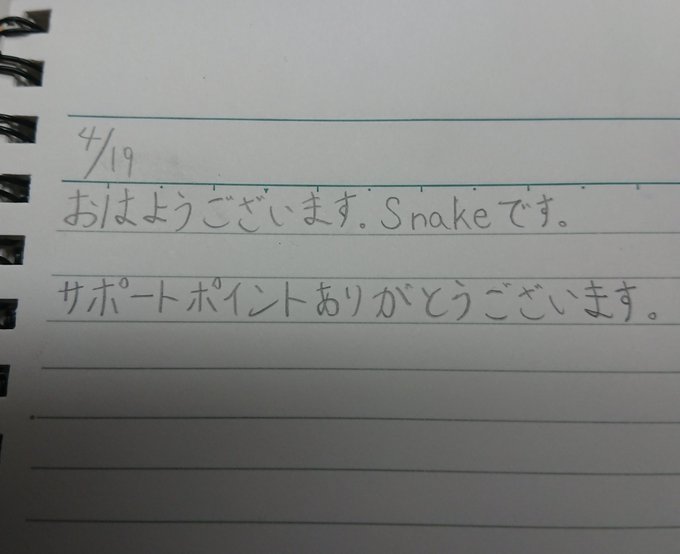 4/19
おはようございます。Snakeです。
サポートポイントありがとうございます。